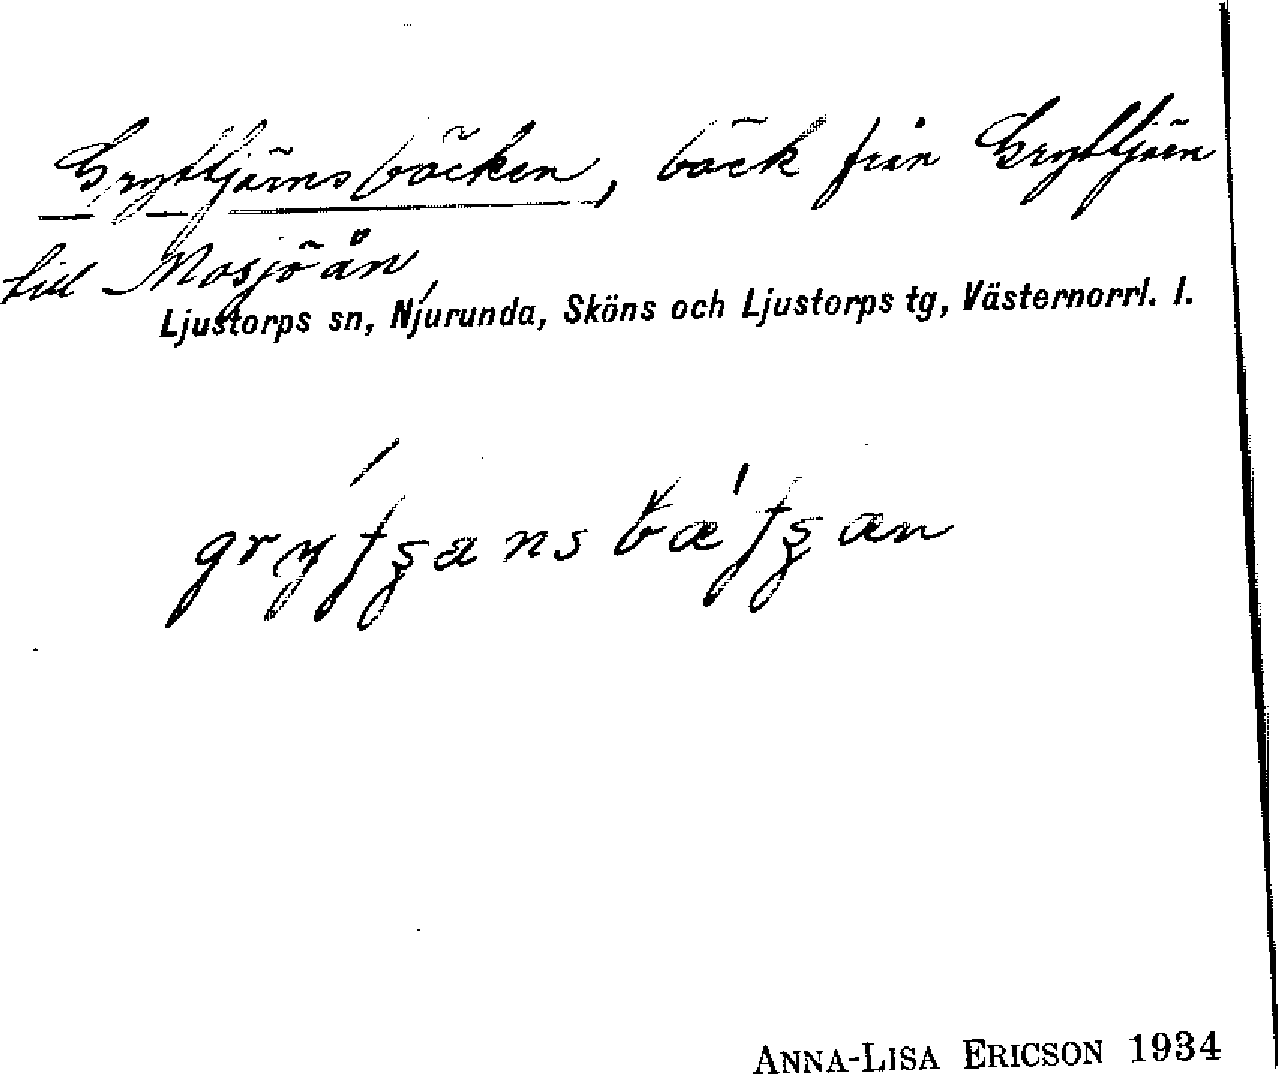 Gryttjärnsbäcken, bäck från Gryttjärn
till Mosjöån
Ljustorps sn, Njurunda, Sköns och Ljustorps tg, Västernorrl. l.
ANNA-LISA ERICSON 1934